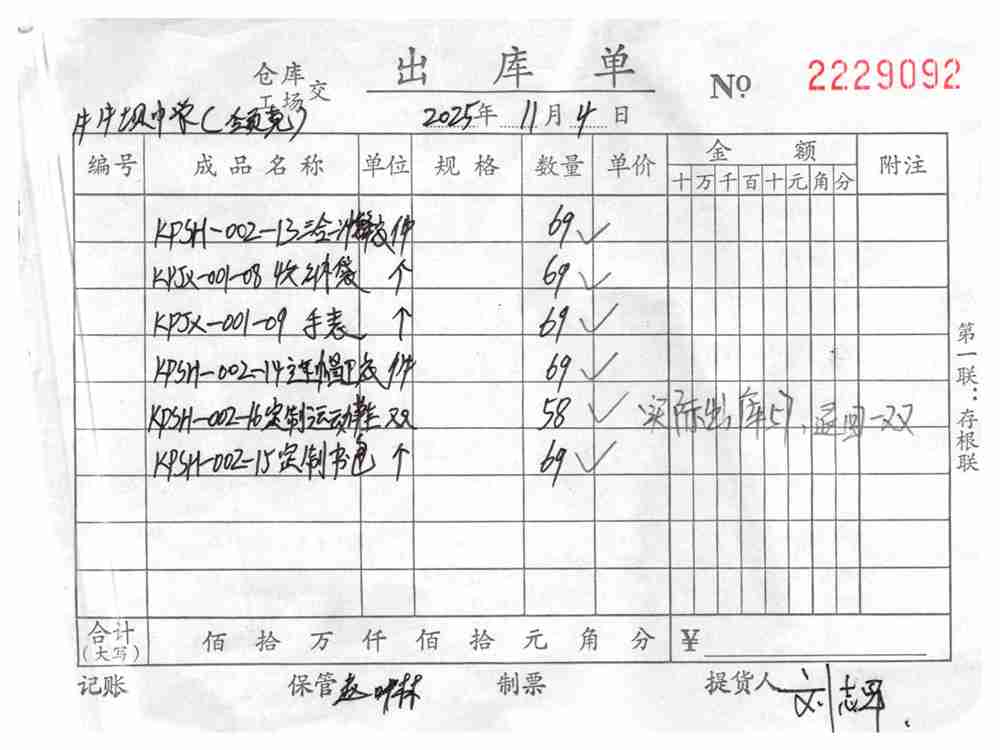 出库单
仓库
工场 交
№ 2229092
中学(
2025年 11月 4日
编号 成品名称 单位 规格 数量 单价 金额 附注
十 万 千 百 十 元 角 分
KPSH-002-13三合一冲锋衣 件 69 ✓
KPJX-001-08 文件袋 个 69 ✓
KPJX-001-09 手表 个 69 ✓
KPSH-002-14 件 69 ✓
KPSH-002-16定制运动鞋 双 58 ✓ 实际出库57,退回一双
KPSH-002-15定制书包 个 69 ✓
第一联:存根联
合计
(大写) 佰 拾 万 仟 佰 拾 元 角 分 ¥
记账 保管 赵 林 制票 提货人 刘志